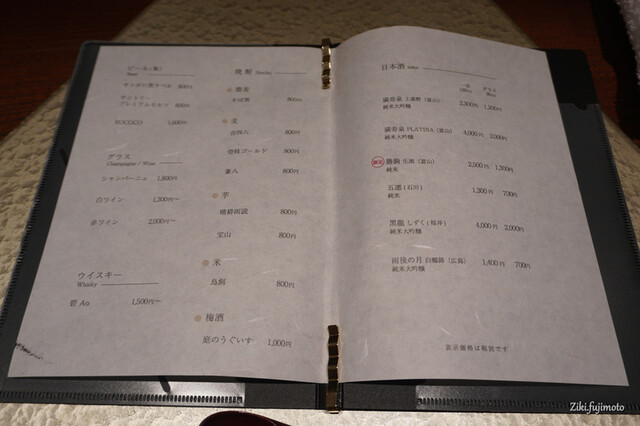 ビール(瓶)
Beer
サッポロ黒ラベル 800円
サントリー
プレミアムモルツ 800円
ROCOCO 1,800円
グラス
Champagne / Wine
シャンパーニュ 1,800円
白ワイン 1,200円〜
赤ワイン 2,000円〜
ウイスキー
Whisky
碧 Ao 1,500円〜
焼酎 Shochu
蕎麦
800円
麦
吉四六 800円
壱岐ゴールド 800円
兼八 800円
芋
晴耕雨読 800円
宝山 800円
米
鳥飼 800円
梅酒
庭のうぐいす 1,000円
日本酒 Sake
一合 グラス
満寿泉 (富山) 2,300円 1,200円
純米大吟醸
満寿泉 PLATINA (富山) 4,000円 2,000円
純米大吟醸
限定 勝駒 (富山) 2,000円 1,300円
純米
五凛 (石川) 1,300円 700円
純米
黒龍 しずく (福井) 4,000円 2,000円
純米大吟醸
雨後の月 白鶴錦 (広島) 1,400円 700円
純米大吟醸
表示価格は税別です
Ziki.fujimoto